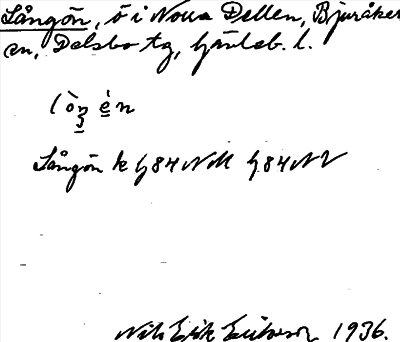 Långön, ö i Norra Dellen, Bjuråker
sn, Delsbo tg, Gävleb. l.
lòŋ èn
Långön k G84NM G84NV
Nils Erik Eriksson 1936.